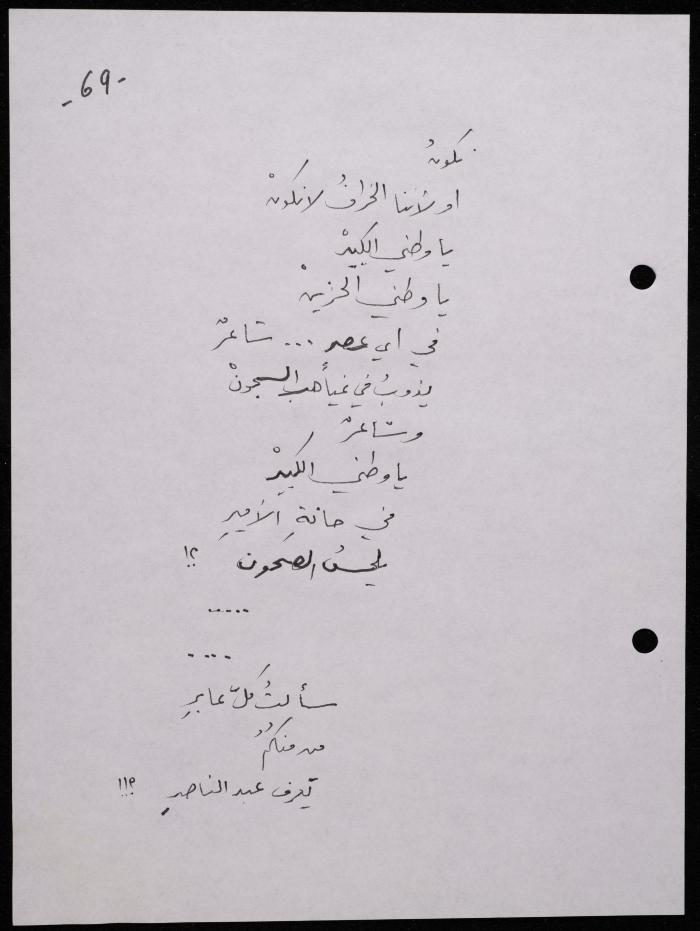 -69-
نكونُ
او شأننا الخرافُ لا نكونْ
يا وطني الكبيرْ
يا وطني الحزينْ
في اي عصر ... شاعرٌ
يذوبُ في غياهب السجونْ
وشاعرٌ
يا وطني الكبيرْ
في حانةِ الأميرِ
يلحسُ الصحون ؟!
.....
....
سألتُ كلّ عابرِ
من منكمُ
يعرف عبد الناصرِ ؟!!!